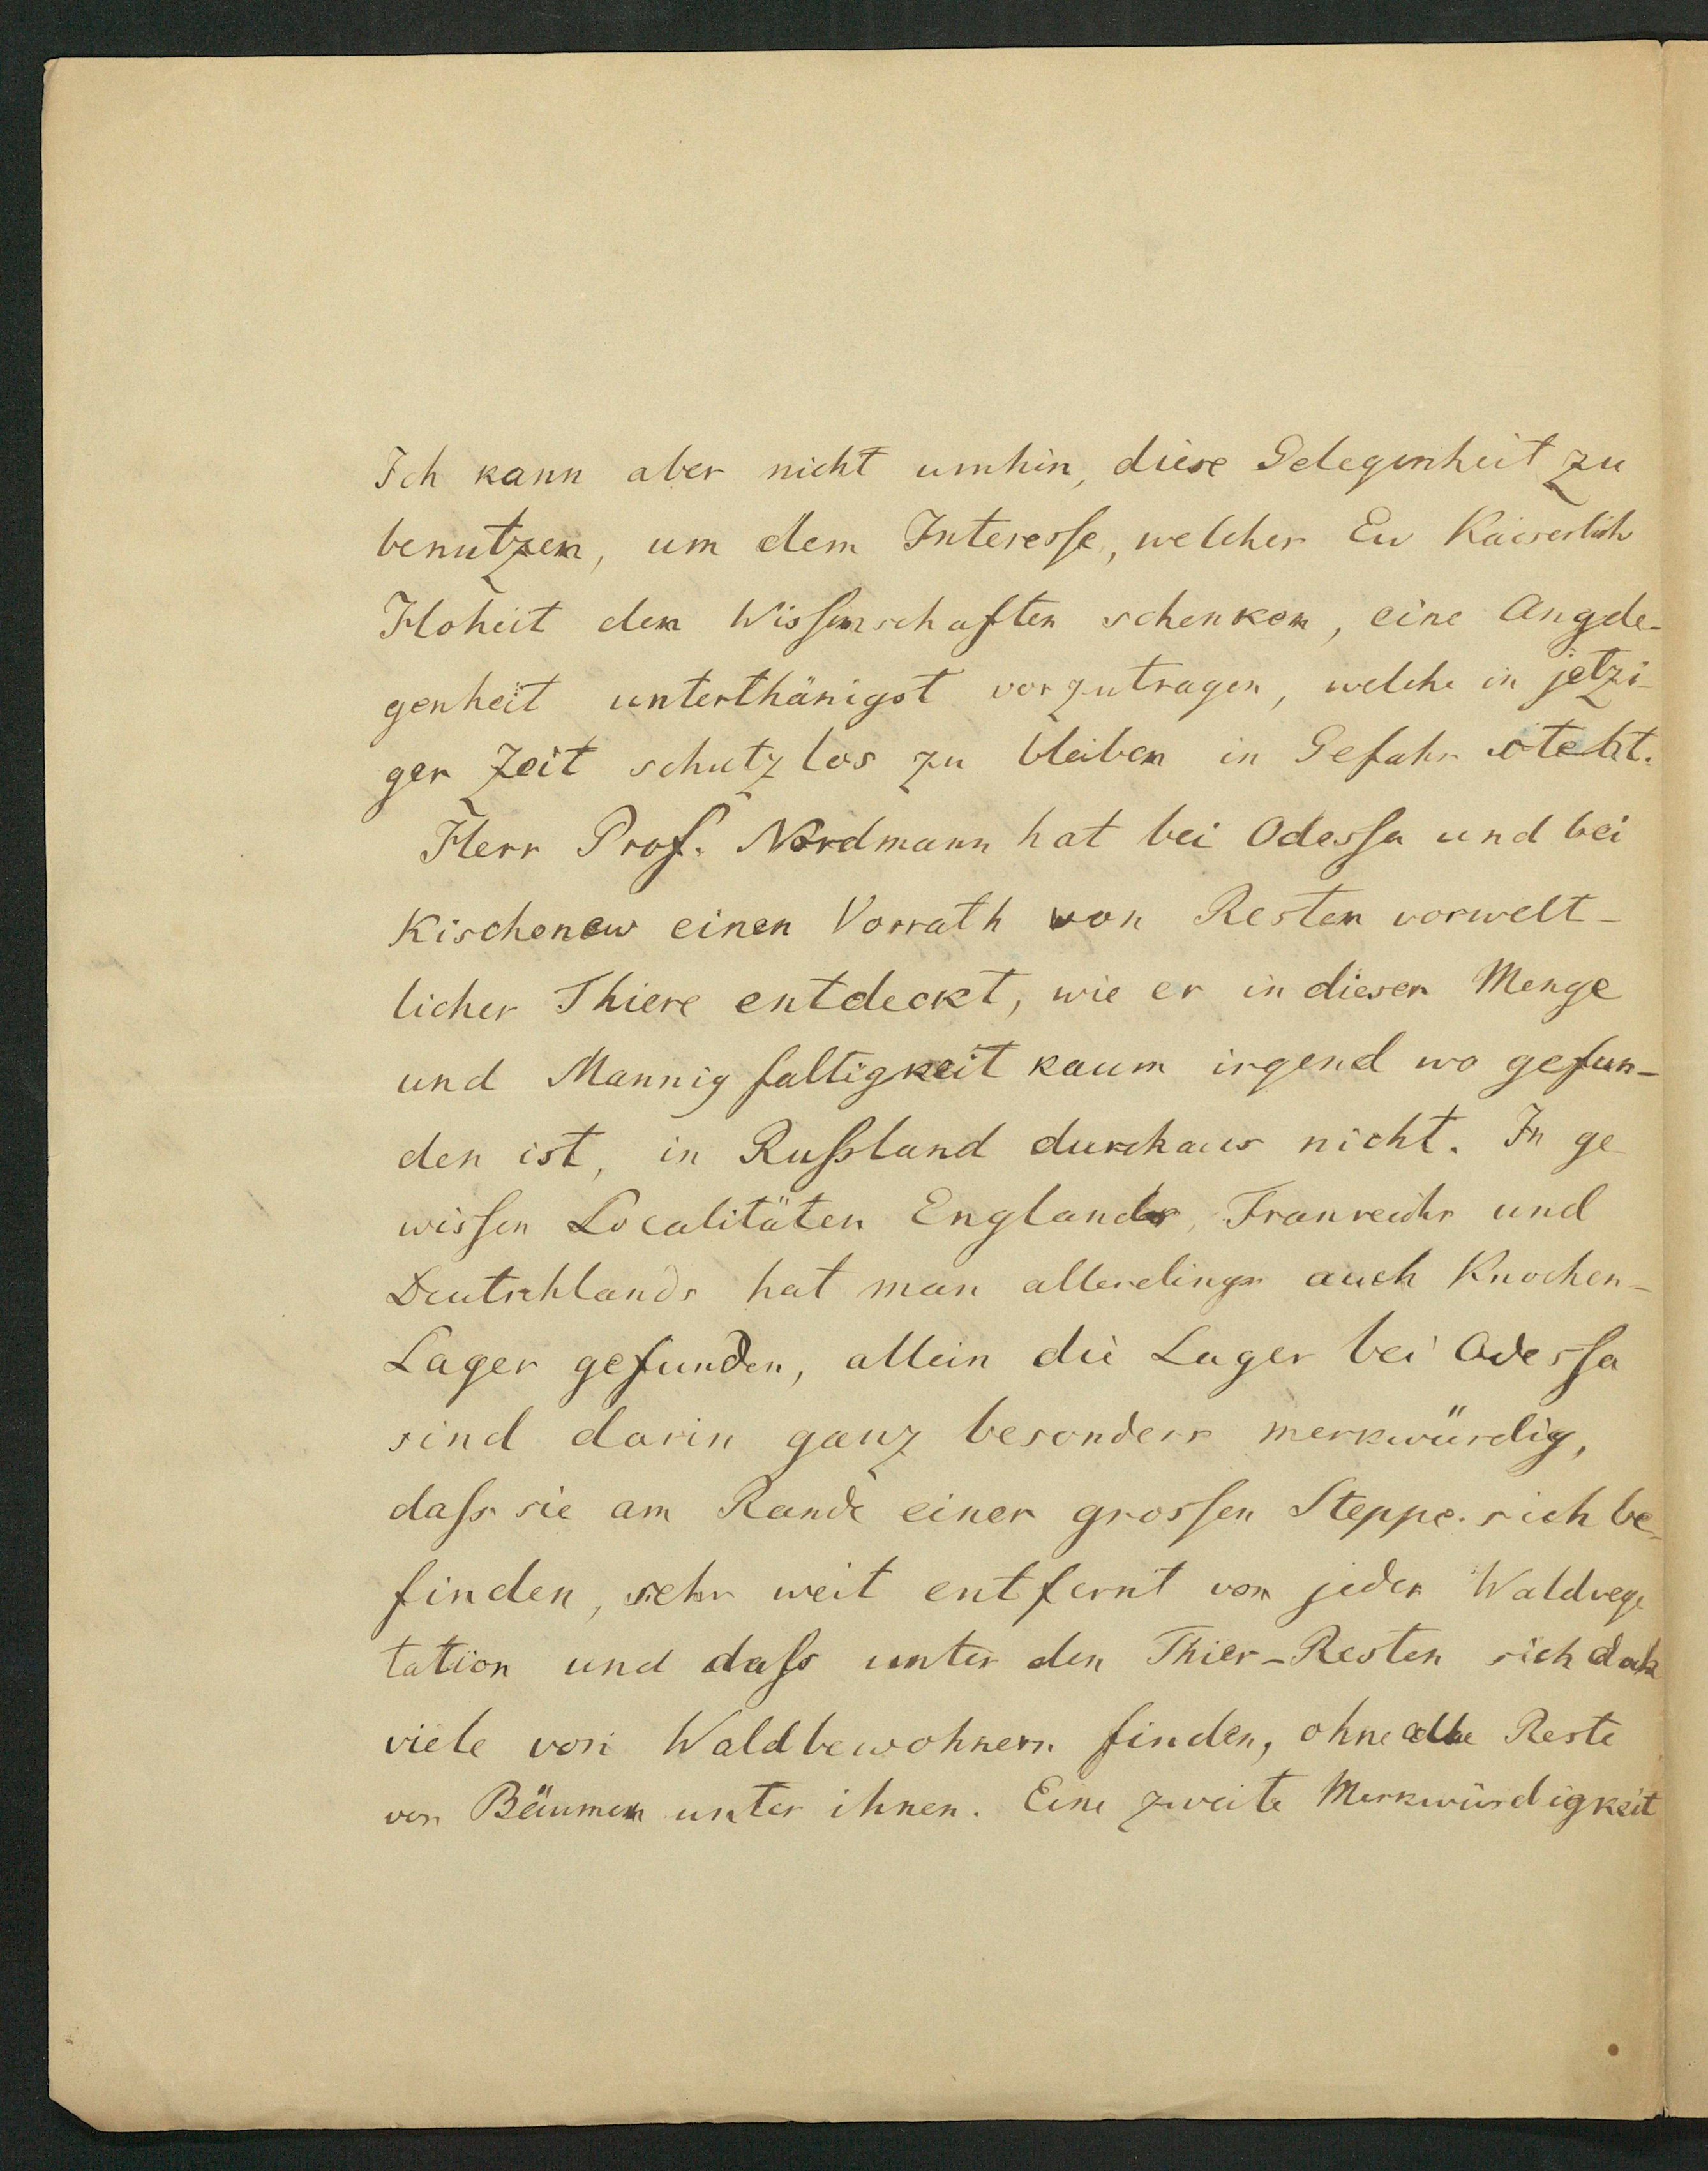 Ich kann aber nicht umhin, diese Gelegenheit zu
benutzen, um dem Interesse, welches Ew Kaiserlich
Hoheit den Wissenschaften schenken, eine Angele-
genheit unterthänigst vorzutragen, welche in jetzi-
ger Zeit schutzlos zu bleiben in Gefahr steht.
Herr Prof. Nordmann hat bei Odessa und bei
Kischenew einen Vorrath von Resten vorwelt-
licher Thiere entdeckt, wie er in dieser Menge
und Mannigfaltigkeit kaum irgend wo gefun-
den ist, in Rußland durchaus nicht. In ge-
wissen Localitäten Englands, Franreichs und
Deutschlands hat man allerdings auch Knochen-
Lager gefunden, allein die Lager bei Odessa
sind darin ganz besonders merkwürdig,
dass sie am Rande einer grossen Steppe sich be-
finden, sehr weit entfernt von jeder Waldvege
tation und dass unter den Thier-Resten sich doch
viele von Waldbewohnern finden, ohne alle Reste
von Bäumen unter ihnen. Eine zweite Merkwürdigkeit